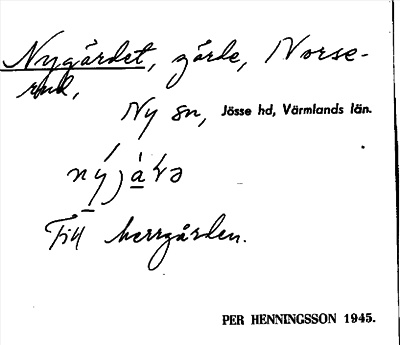 Nygärdet, gärde, Norse-
rud,
Ny sn, Jösse hd, Värmlands län.
nýjàṛə
Till herrgården.
PER HENNINGSSON 1945.